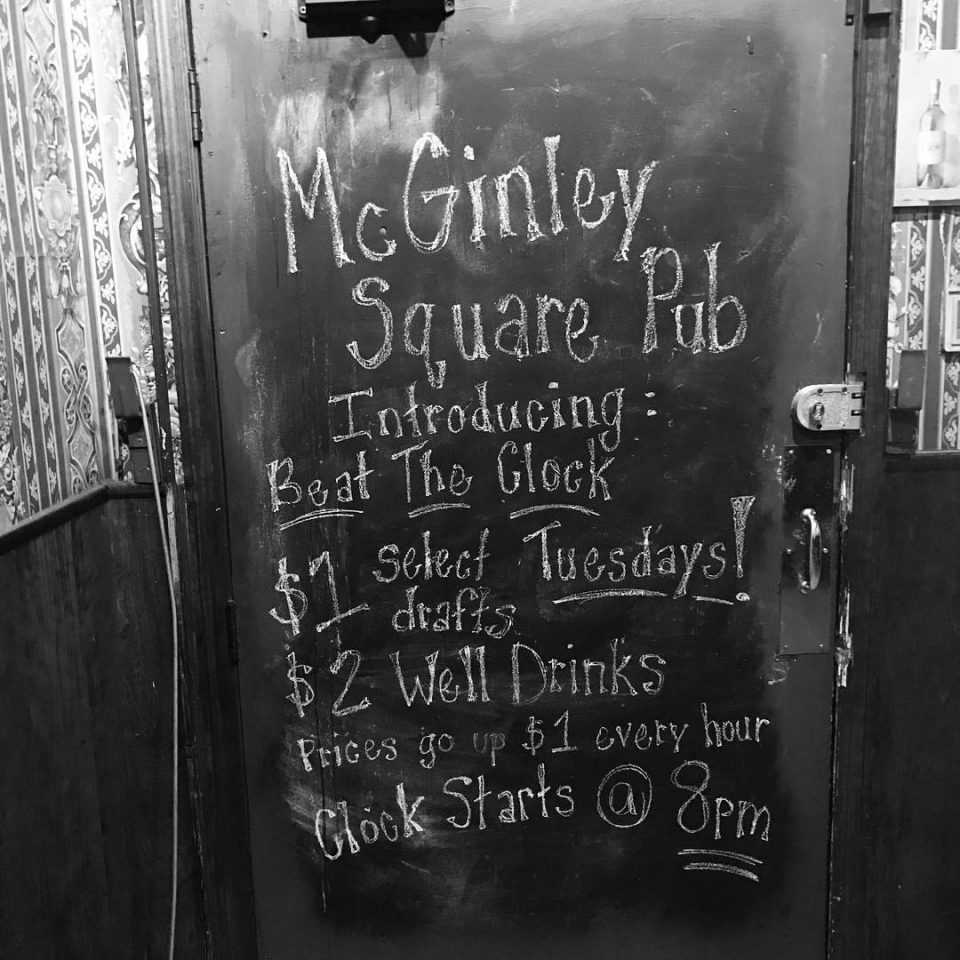 McGinley
Square Pub
Introducing:
Beat The Clock
Tuesdays!
$1 select
drafts
$2 Well Drinks
Prices go up $1 every hour
Clock Starts @ 8pm